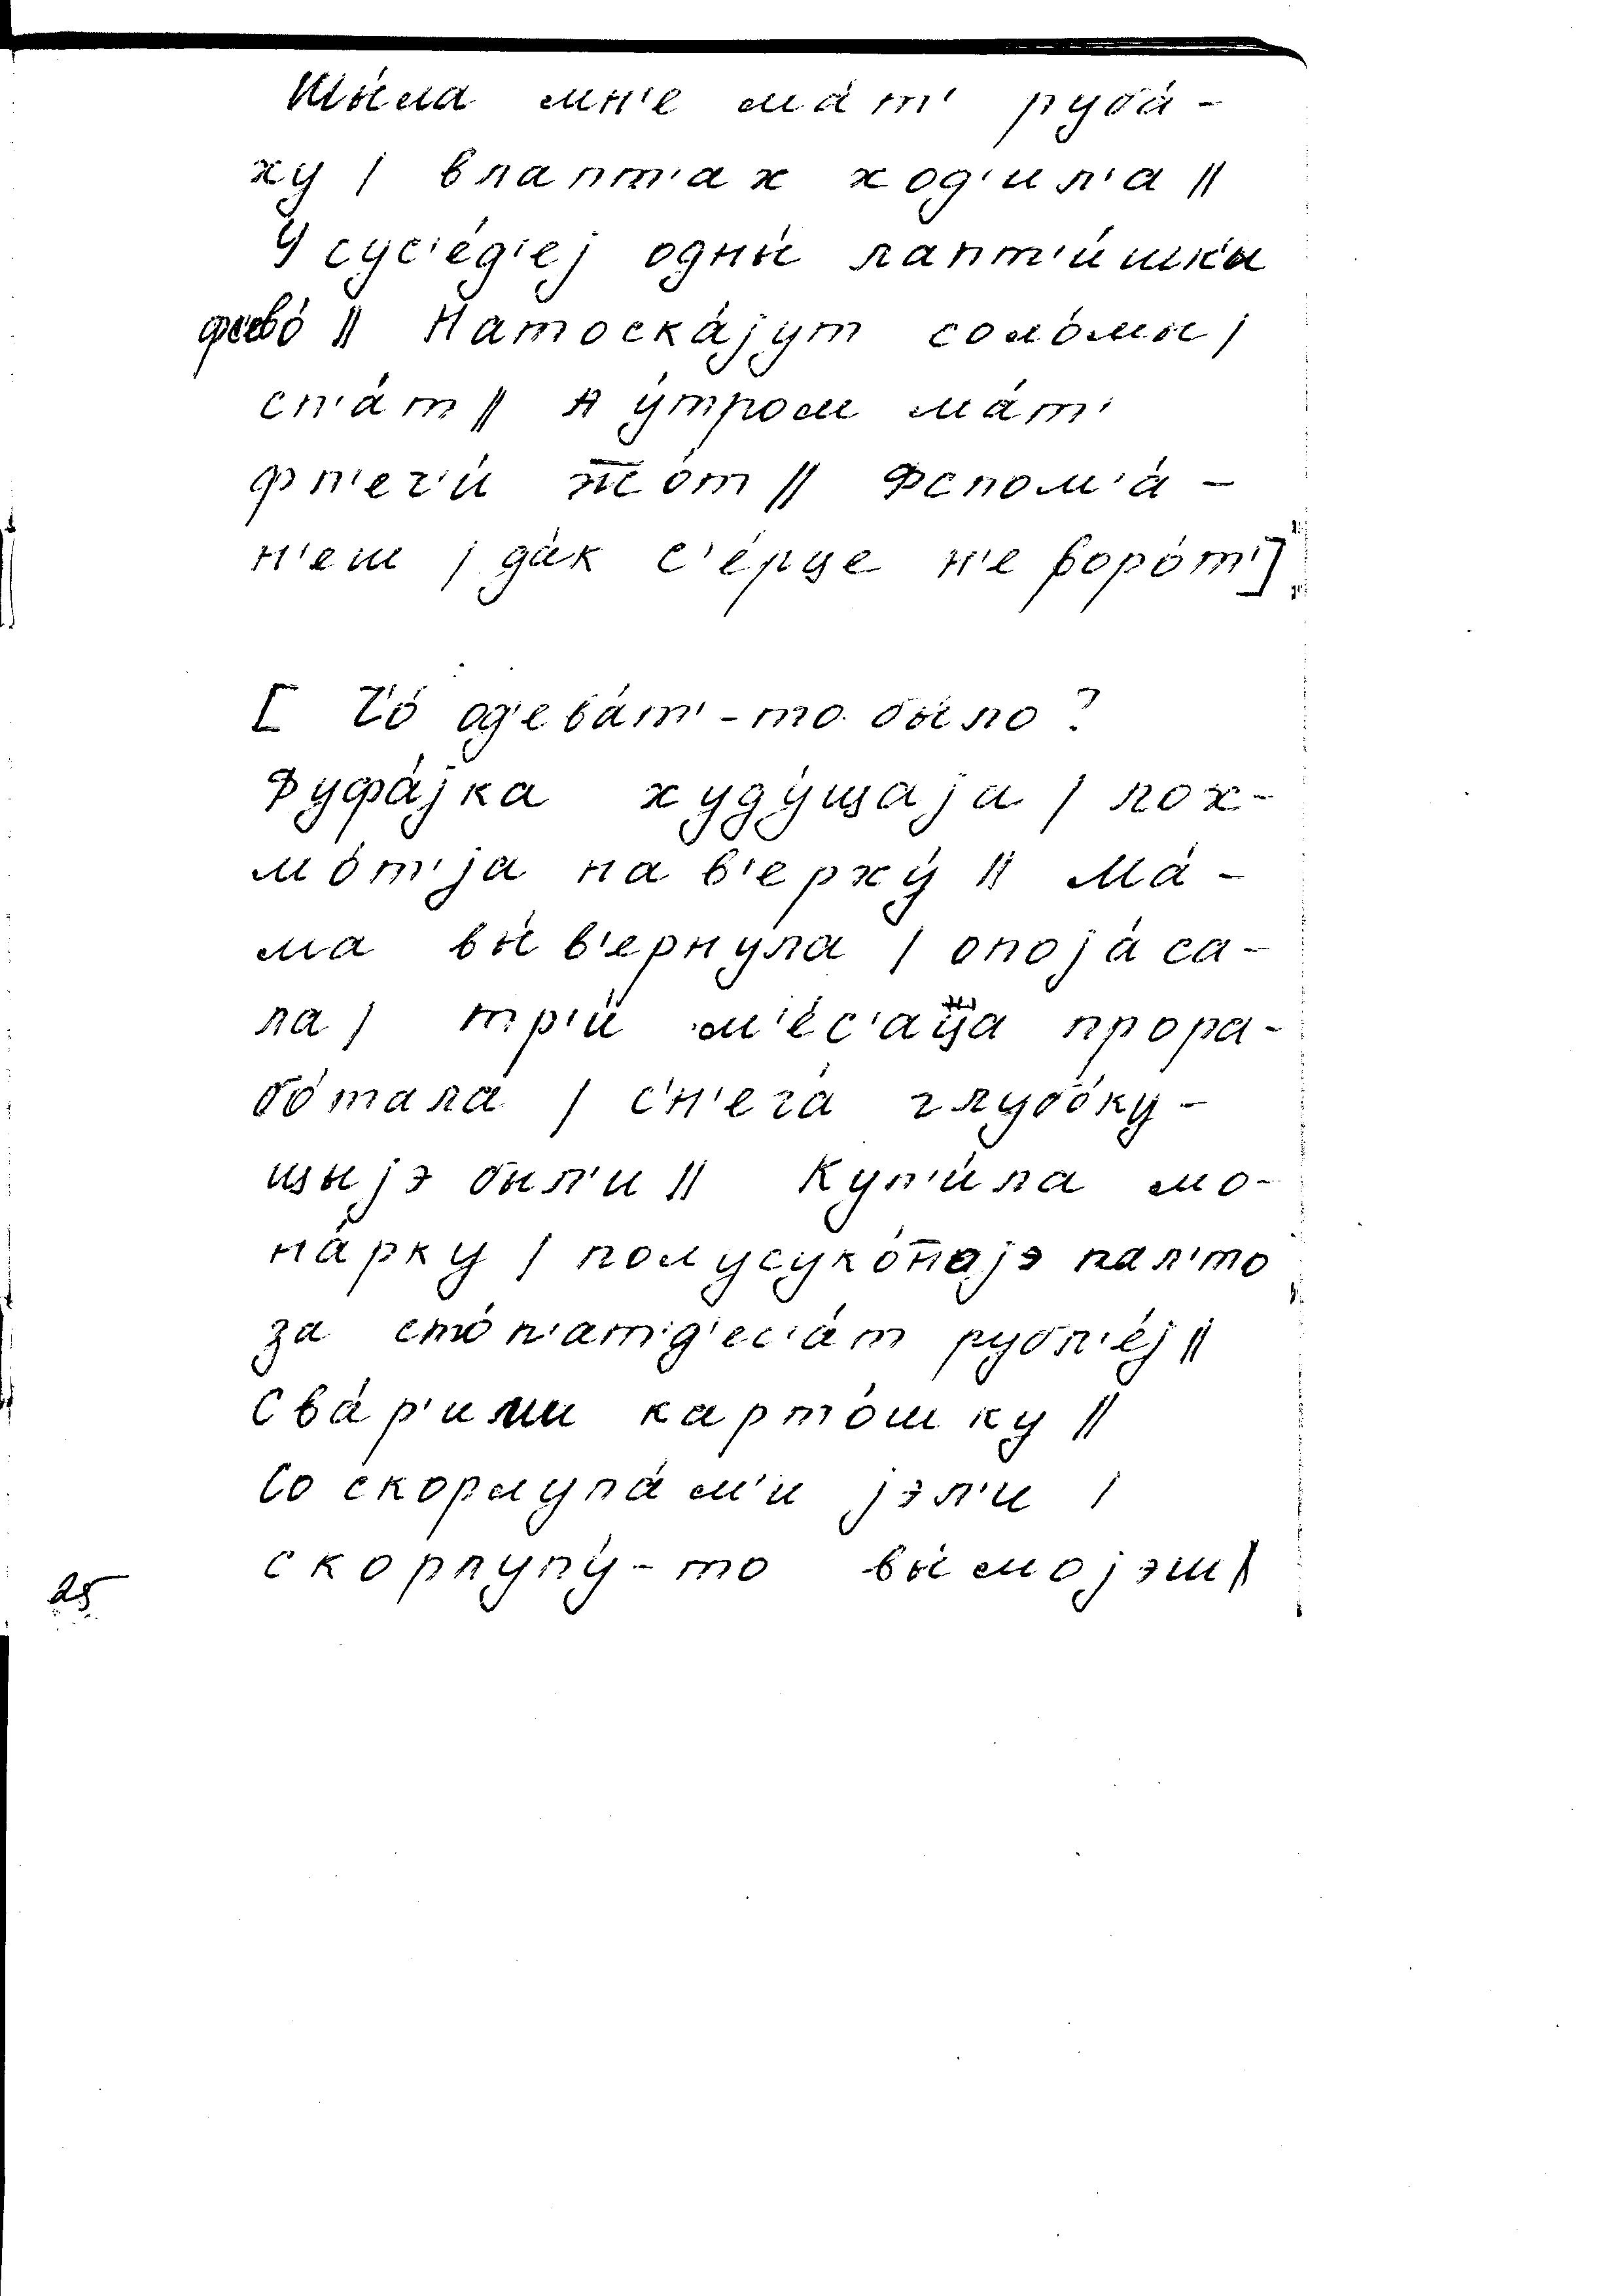 Шы́ла мн'е ма́т' руба́-
ху / влапт'ах ход'ил'а //
У сус'е́д'еj одны́ лапт'и́шк'и
фс'ево́ // Натоска́jут соло́мы /
сп'а́т // А у́тром ма́т'
фп'еч'и́ т̅о́т // Фспом'а́-
н'еш / да́к с'е́рце н'е воро́т']
[ Ч'о́ од'ева́т'-то бы́ло?
Фуфа́jка худу́щаjа / лох-
мо́т'jа на в'ерху́ // Ма́-
ма вы́в'ернула / опоjа́са-
ла / тр'и́ м'е́с'аца прора-
бо́тала / с'н'ега́ глубо́ку-
щыjэ был'и // Куп'и́ла мо-
на́рку / полусуко́н̅оjэ пал'то
за сто́п'ат'д'ес'а́т рубл'е́j //
Сва́р'или карто́шку //
Со скорлупа́м'и jэл'и /
скорлупу́-то вы́моjэш //
25